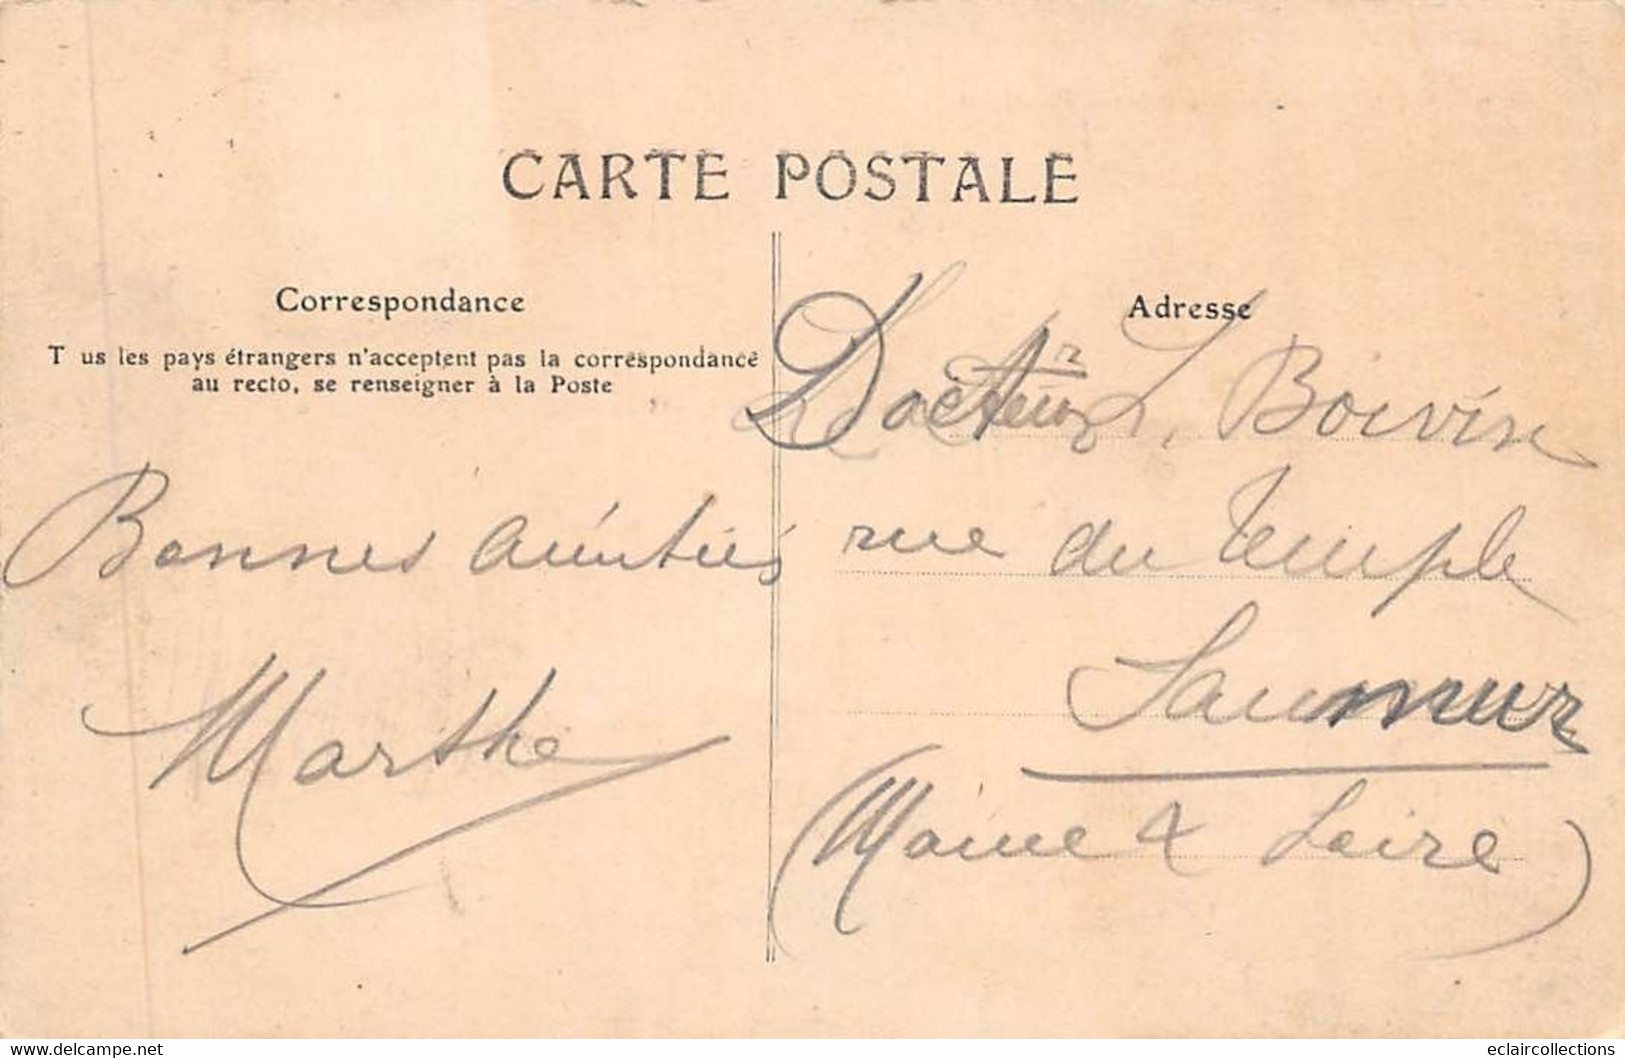 CARTE POSTALE
Correspondance
T us les pays étrangers n'acceptent pas la correspondance
au recto, se renseigner à la Poste
Bonnes amitiés
Marthe
Adresse
Docteur L. Boivin
rue du Temple
Saumur
(Maine & Loire)
www.delcampe.net
eclaircollections